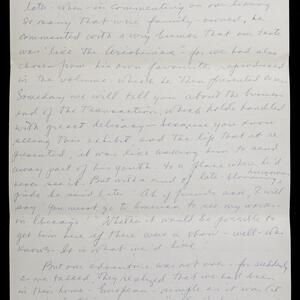 late - when - in commenting on our having
so many that were family-owned, he
commented with a wry
was "like the
chosen from his own favourites, reproduced
in the volume which he then presented to me.
Someday we will tell you about the business
end of the transaction, which he handled
with great delicacy - because you know
selling this exhibit and the life that it re-
presented, it was like asking him to send
away part of his youth to a place where he'd
never see it. But with a kind of
he said later "Ah, if friends ask, I will
say 'You must go to America to see my works -
in Chicago!'" Whether it would be possible to
get him here if there was a show - well - who
knows. It is what we'd like.
But our adventure was not over - for suddenly
as we talked, they realized that we had been
in their home - European - simple as it was